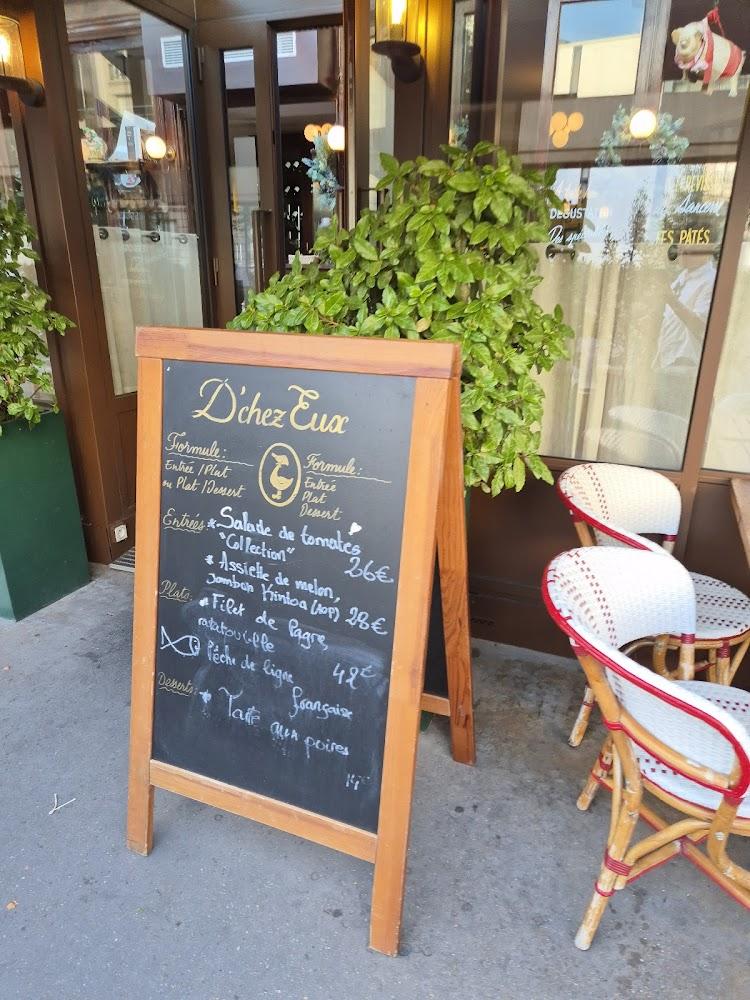 D'chez Eux
Formule:
Entrée / Plat
ou Plat / Dessert
Formule:
Entrée
Plat
Dessert
Entrées: * Salade de tomates
"Collection" 26€
* Assiette de melon,
Jambon Kintoa (AOP) 28€
Plats: * Filet de Pagre,
ratatouille
Pêche de ligne 42€
française
Desserts: * Tarte aux poires
14€
DEGUSTATI
ES PATÉS